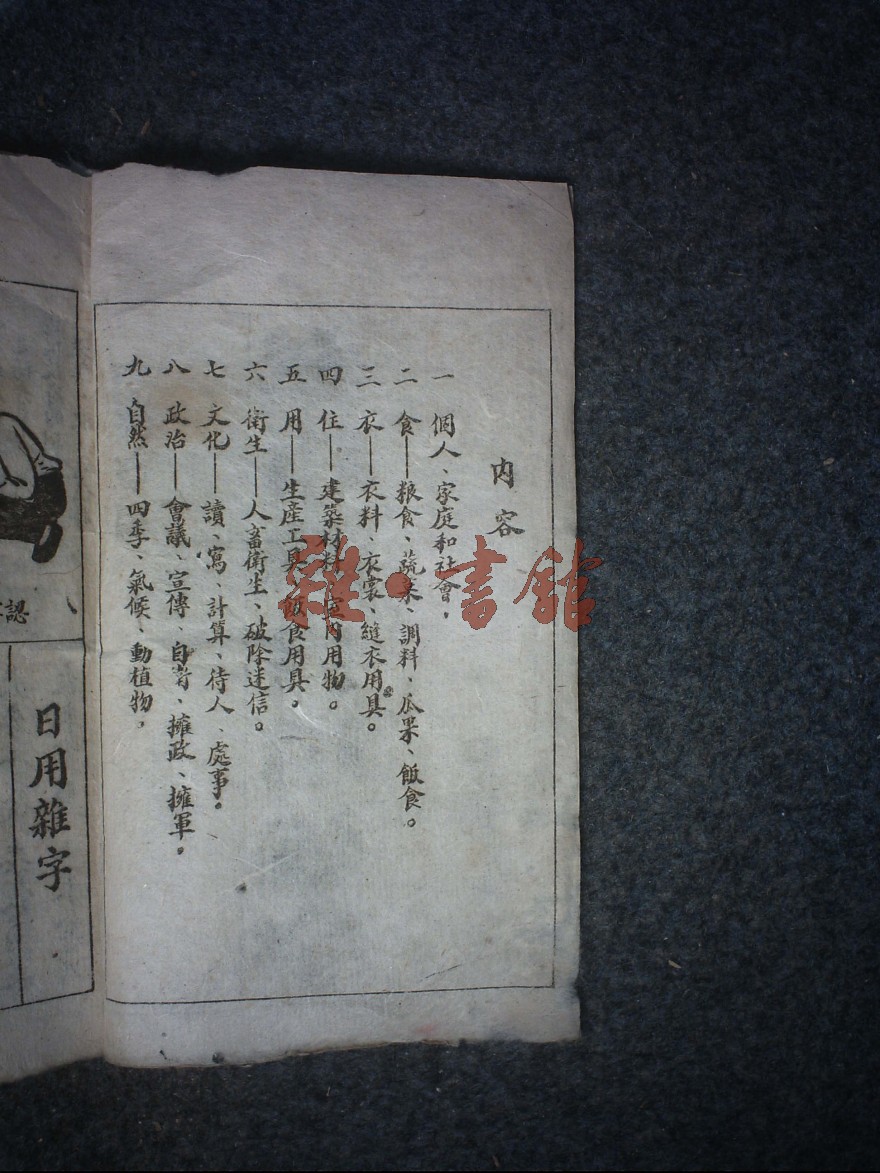 内容
一 個人、家庭和社會,
二 食——粮食、蔬菜、調料、瓜果、飯食。
三 衣——衣料、衣裳、縫衣用具。
四 住——建築材料、室内用物。
五 用——生産工具、飯食用具。
六 衛生——人畜衛生、破除迷信。
七 文化——讀、寫、計算、待人、處事。
八 政治——會議、宣傳 自衛、擁政、擁軍。
九 自然——四季、氣候、動植物,
日用雜字
認
雜·書館